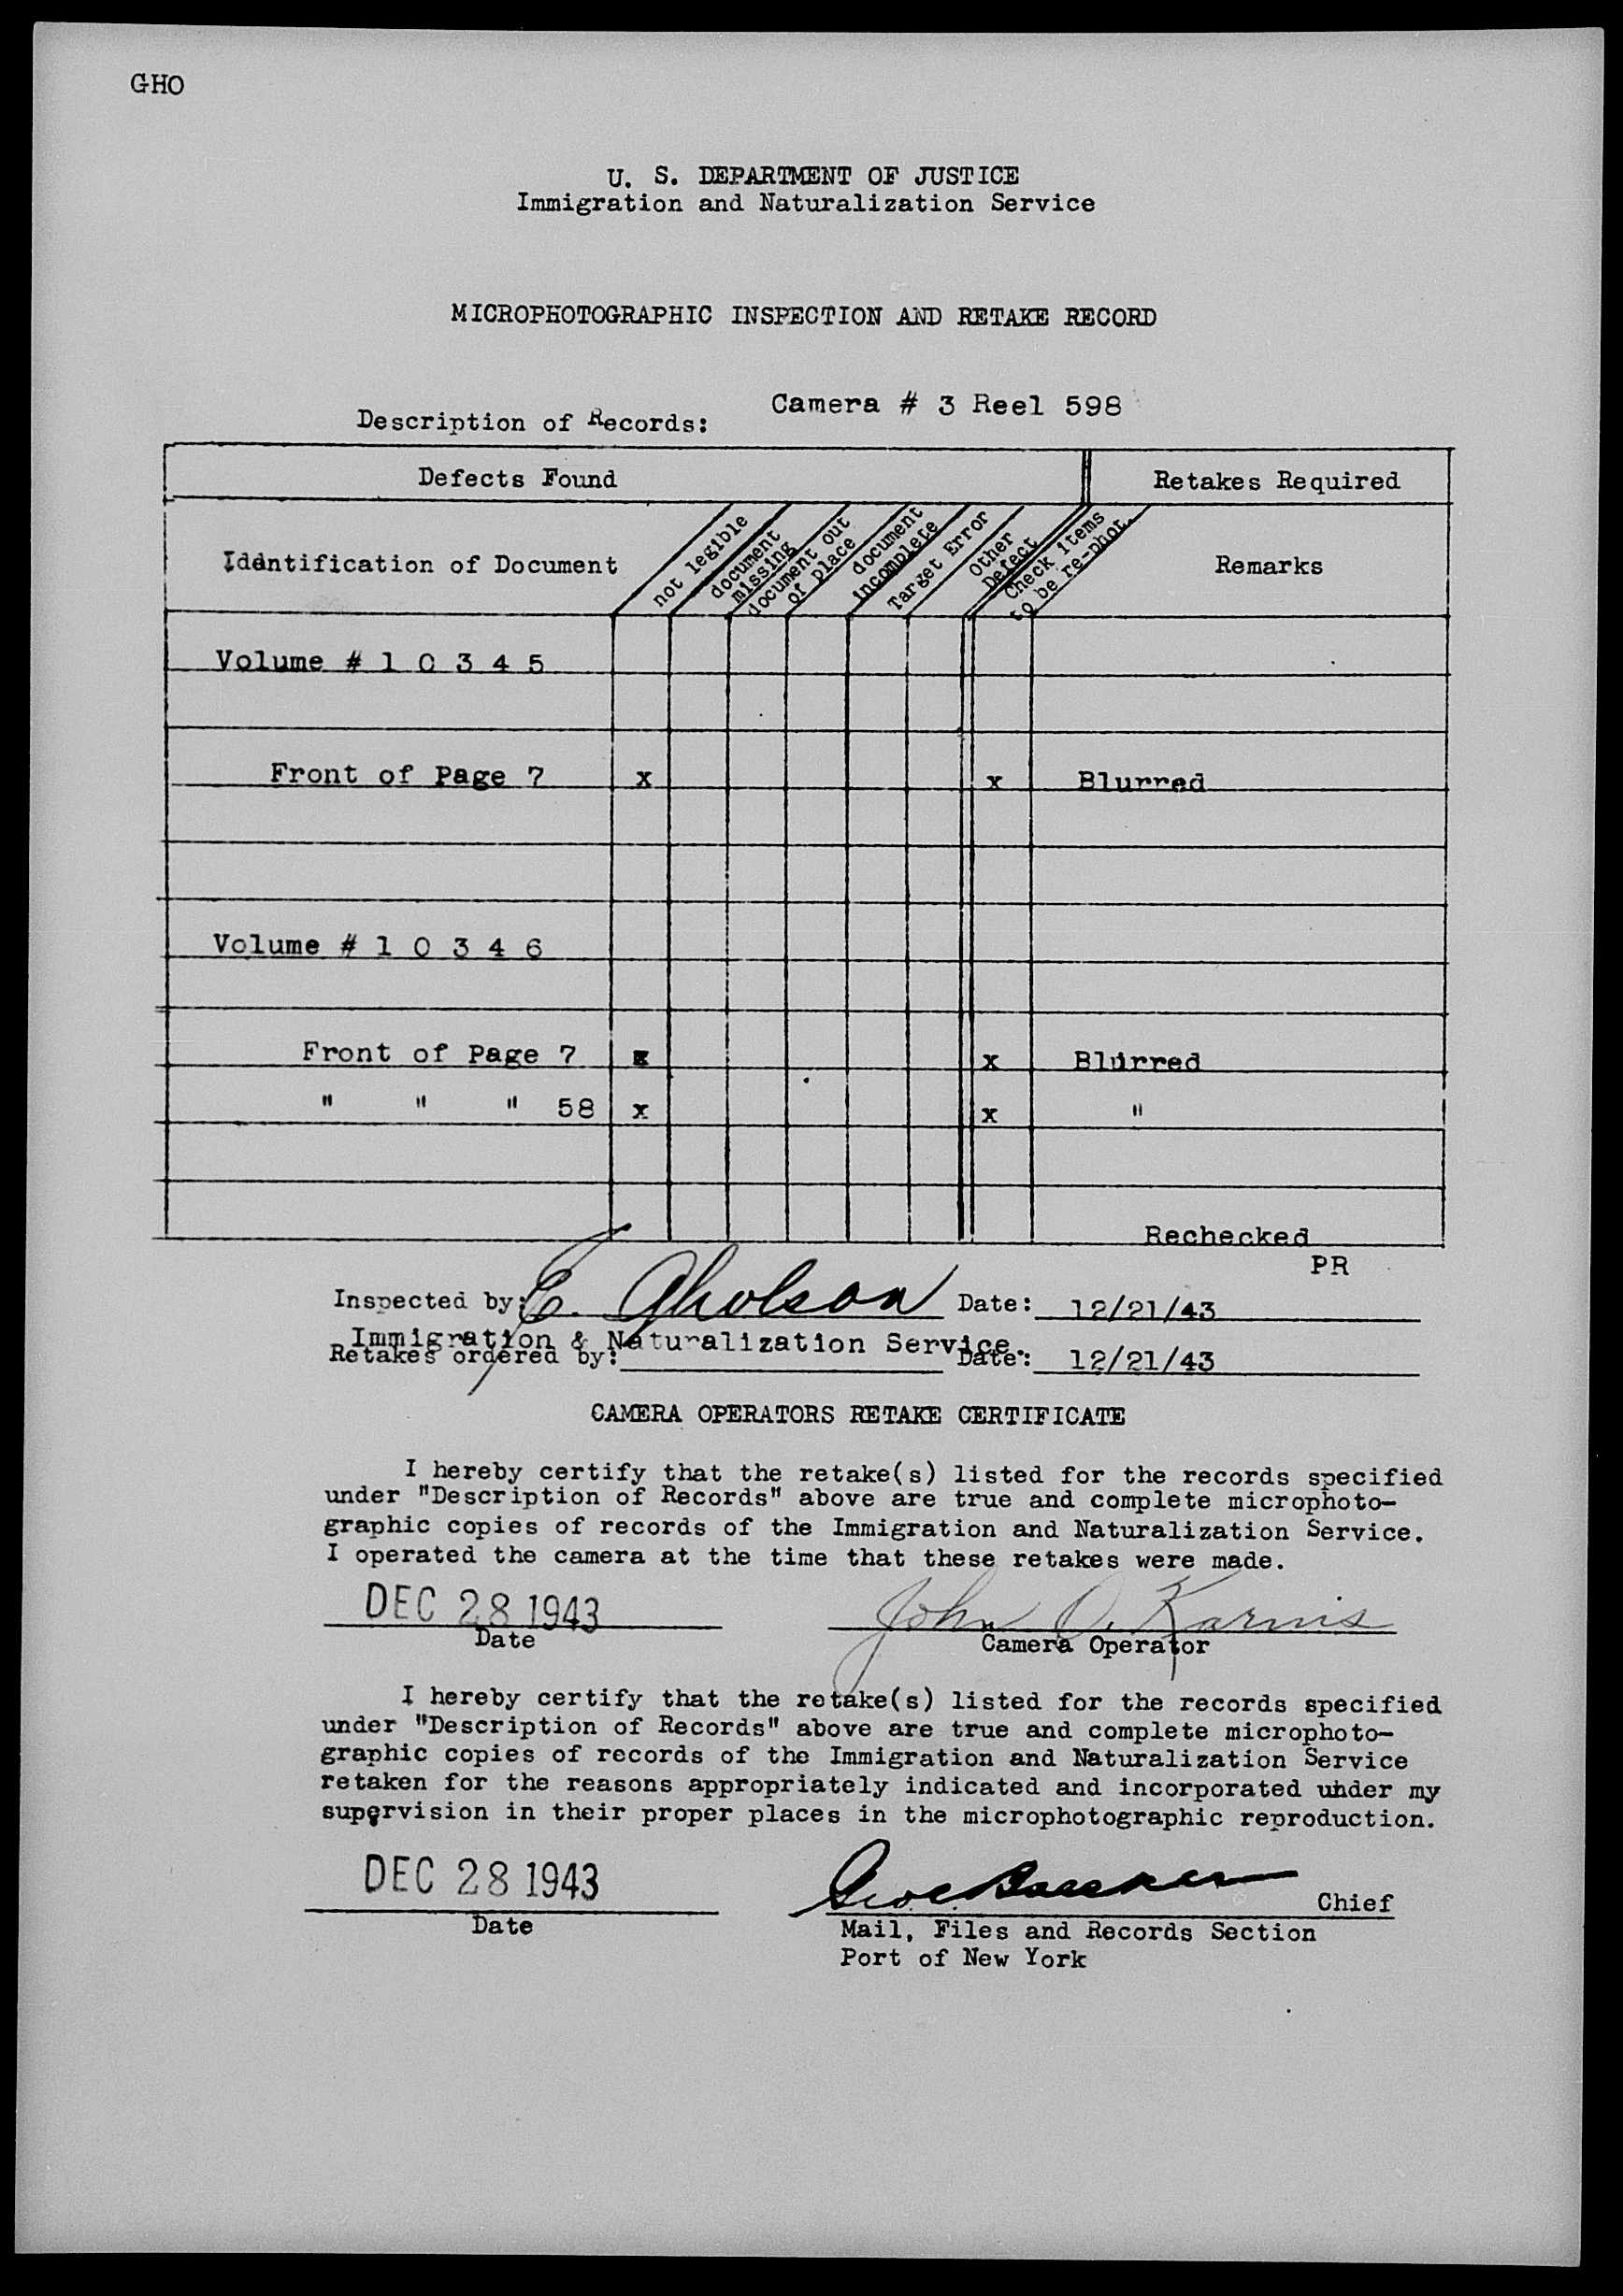 GHO
U. S. DEPARTMENT OF JUSTICE
Immigration and Naturalization Service
MICROPHOTOGRAPHIC INSPECTION AND RETAKE RECORD
Description of Records: Camera # 3 Reel 598
Defects Found Retakes Required
Identification of Document not legible document missing document out of place document incomplete Target Error Other Defect Check items to be re-phot. Remarks
Volume # 1 0 3 4 5
Front of Page 7 x x Blurred
Volume # 1 0 3 4 6
Front of Page 7 x x Blurred
" " " 58 x x "
Rechecked
PR
Inspected by: E. Gholson Date: 12/21/43
Immigration & Naturalization Service.
Retakes ordered by: Date: 12/21/43
CAMERA OPERATORS RETAKE CERTIFICATE
I hereby certify that the retake(s) listed for the records specified
under "Description of Records" above are true and complete microphoto-
graphic copies of records of the Immigration and Naturalization Service.
I operated the camera at the time that these retakes were made.
DEC 28 1943 John O. Karnis
Date Camera Operator
I hereby certify that the retake(s) listed for the records specified
under "Description of Records" above are true and complete microphoto-
graphic copies of records of the Immigration and Naturalization Service
retaken for the reasons appropriately indicated and incorporated under my
supervision in their proper places in the microphotographic reproduction.
DEC 28 1943 Chief
Date Mail, Files and Records Section
Port of New York